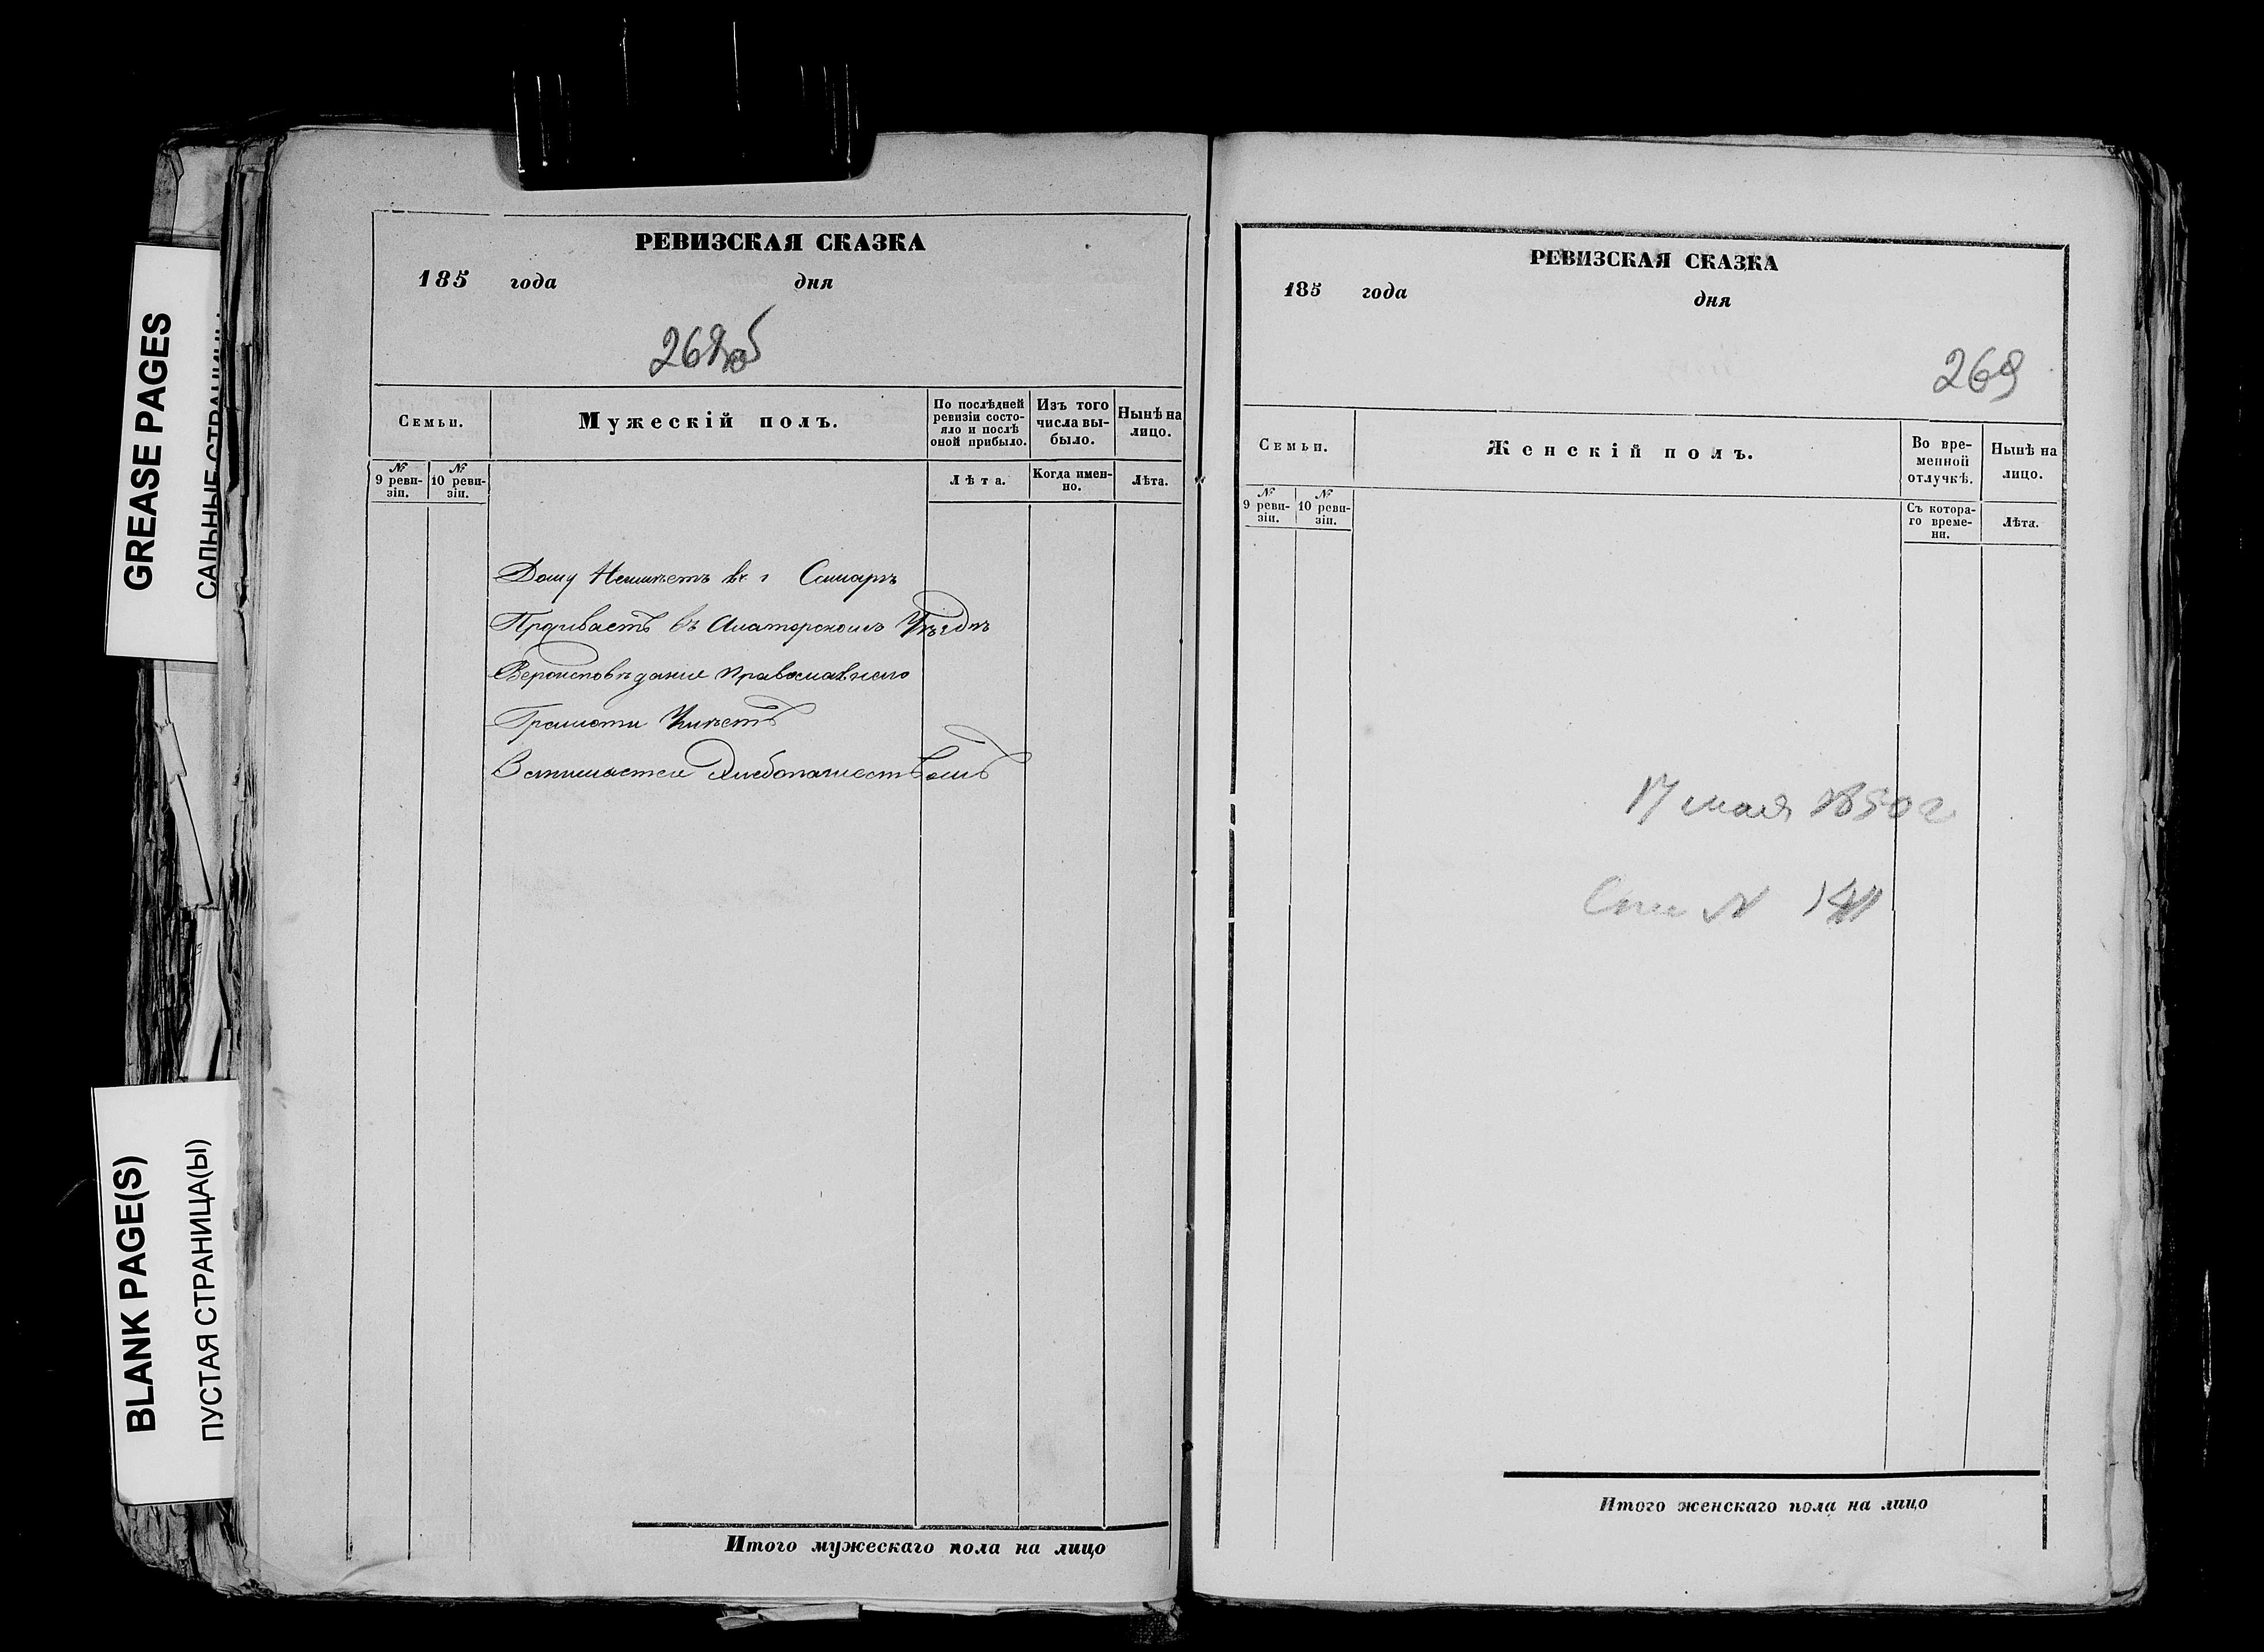 GREASE PAGES
САЛЬНЫЕ СТРАНИЦЫ
BLANK PAGE(S)
ПУСТАЯ СТРАНИЦА(Ы)
РЕВИЗСКАЯ СКАЗКА
185 года дня
268об
Семьи.
Мужескій полъ.
По послѣдней
ревизіи состо-
яло и послѣ
оной прибыло.
Изъ того
числа вы-
было.
Нынѣ на
лицо.
№
9 реви-
зіи.
№
10 реви-
зіи.
Лѣта.
Когда имен-
но.
Лѣта.
Дому Неимѣетъ въ г Самарѣ
въ Уѣздѣ
Вероисповѣдание православнаго
Грамоти Умѣетъ
Хлебопашествомъ
Итого мужескаго пола на лицо
РЕВИЗСКАЯ СКАЗКА
185 года дня
269
Семьи.
Женскій полъ.
Во вре-
менной
отлучкѣ.
Нынѣ на
лицо.
№
9 реви-
зіи.
№
10 реви-
зіи.
Съ котора-
го време-
ни.
Лѣта.
17 мая 1850 г
№
Итого женскаго пола на лицо